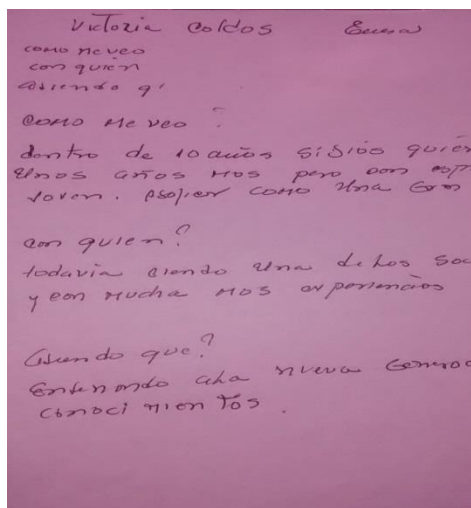 Victoria Coldos
como me veo
con quien
como Me veo ?
dentro de 10 años si Dios quier
Unos años mos pero con esp
Joven. como Una Gran
con quien?
todavia siendo Una de Los Soc
y con Mucha Mos experiencias
que?
a La nueva Generac
conocimientos.